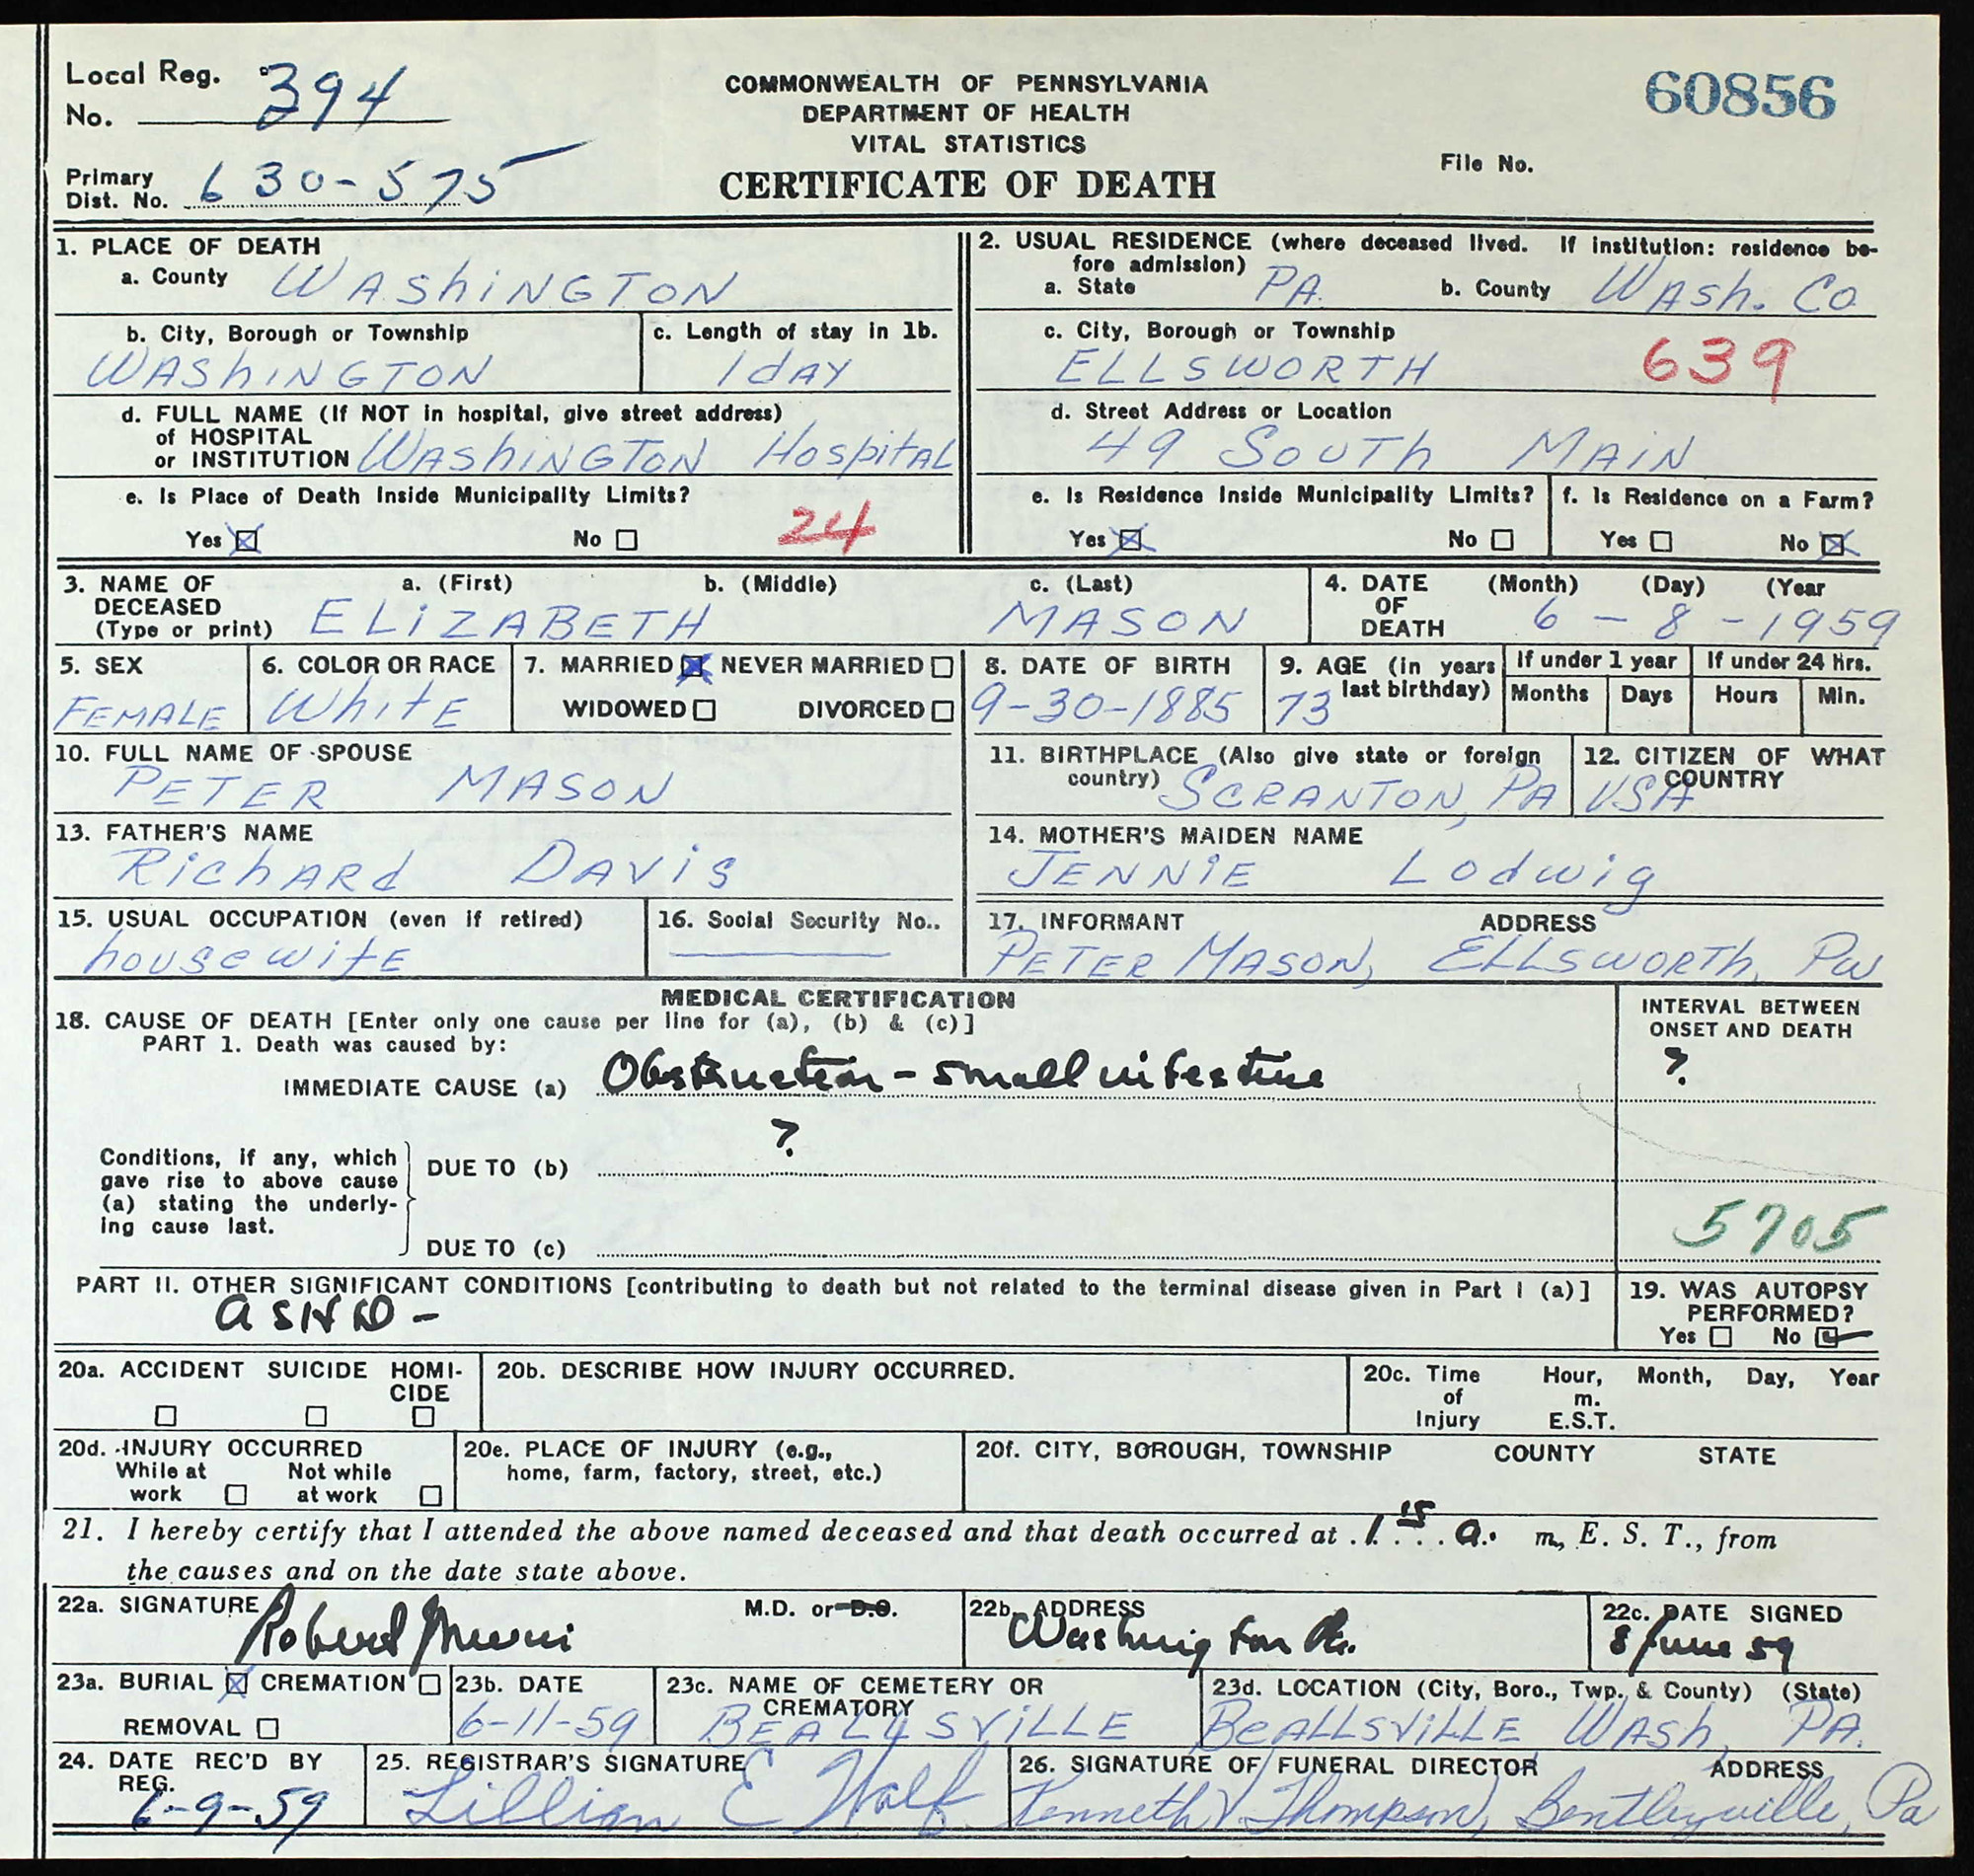 Local Reg. No. 394
COMMONWEALTH OF PENNSYLVANIA
DEPARTMENT OF HEALTH
VITAL STATISTICS
CERTIFICATE OF DEATH
60856
File No.
Primary Dist. No. 630-575
1. PLACE OF DEATH
a. County WAShiNGTON
b. City, Borough or Township
WAShINGTON
c. Length of stay in 1b.
1 dAY
d. FULL NAME (If NOT in hospital, give street address)
of HOSPITAL
or INSTITUTION WAShiNGTON HospitAL
e. Is Place of Death Inside Municipality Limits?
Yes ☒ No ☐ 24
2. USUAL RESIDENCE (where deceased lived. If institution: residence be-
fore admission)
a. State PA. b. County WAsh. Co
c. City, Borough or Township
ELLSWORTH 639
d. Street Address or Location
49 SOUTh MAIN
e. Is Residence Inside Municipality Limits?
Yes ☒ No ☐
f. Is Residence on a Farm?
Yes ☐ No ☒
3. NAME OF DECEASED (Type or print)
a. (First) b. (Middle) c. (Last)
ELiZABETH MASON
4. DATE OF DEATH (Month) (Day) (Year
6 - 8 - 1959
5. SEX
FEMALE
6. COLOR OR RACE
WhitE
7. MARRIED ☒ NEVER MARRIED ☐
WIDOWED ☐ DIVORCED ☐
8. DATE OF BIRTH
9-30-1885
9. AGE (in years last birthday)
73
If under 1 year
Months Days
If under 24 hrs.
Hours Min.
10. FULL NAME OF SPOUSE
PETER MASON
11. BIRTHPLACE (Also give state or foreign
country) SCRANTON, PA
12. CITIZEN OF WHAT
COUNTRY
USA
13. FATHER'S NAME
RichARd DAViS
14. MOTHER'S MAIDEN NAME
JENNiE Lodwig
15. USUAL OCCUPATION (even if retired)
housewifE
16. Social Security No..
17. INFORMANT ADDRESS
PETER MASON, ELLSWORTh, Pa
MEDICAL CERTIFICATION
18. CAUSE OF DEATH [Enter only one cause per line for (a), (b) & (c)]
PART 1. Death was caused by:
IMMEDIATE CAUSE (a) Obstruction - small intestine
INTERVAL BETWEEN
ONSET AND DEATH
?
Conditions, if any, which
gave rise to above cause
(a) stating the underly-
ing cause last.
DUE TO (b) ?
DUE TO (c)
5705
PART II. OTHER SIGNIFICANT CONDITIONS [contributing to death but not related to the terminal disease given in Part I (a)]
ASHD -
19. WAS AUTOPSY
PERFORMED?
Yes ☐ No ☑
20a. ACCIDENT SUICIDE HOMI-
CIDE
☐ ☐ ☐
20b. DESCRIBE HOW INJURY OCCURRED.
20c. Time of Injury Hour, m. E.S.T. Month, Day, Year
20d. INJURY OCCURRED
While at work ☐ Not while at work ☐
20e. PLACE OF INJURY (e.g.,
home, farm, factory, street, etc.)
20f. CITY, BOROUGH, TOWNSHIP COUNTY STATE
21. I hereby certify that I attended the above named deceased and that death occurred at 1 15 a. m., E. S. T., from
the causes and on the date state above.
22a. SIGNATURE Robert M.D. or D.O.
22b. ADDRESS
Washington Pa.
22c. DATE SIGNED
8 June 59
23a. BURIAL ☒ CREMATION ☐
REMOVAL ☐
23b. DATE
6-11-59
23c. NAME OF CEMETERY OR
CREMATORY
BEALLSViLLE
23d. LOCATION (City, Boro., Twp. & County) (State)
BeALLSViLLE, WAsh, PA.
24. DATE REC'D BY
REG.
6-9-59
25. REGISTRAR'S SIGNATURE
Lillian E Wolf
26. SIGNATURE OF FUNERAL DIRECTOR ADDRESS
Kenneth V Thompson, Bentleyville, Pa